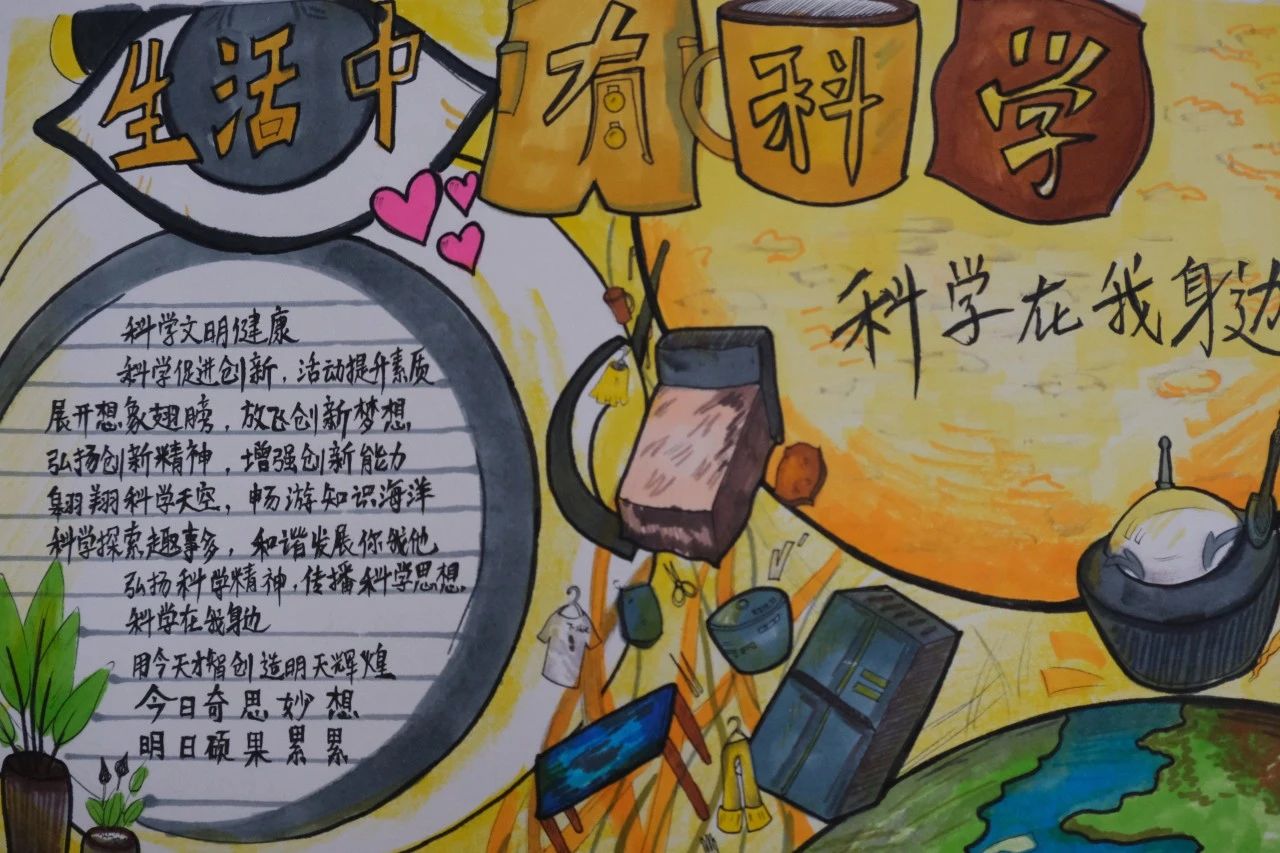 生活中有科学
科学在我身边
科学文明健康
科学促进创新，活动提升素质
展开想象翅膀，放飞创新梦想
弘扬创新精神，增强创新能力
翱翔科学天空，畅游知识海洋
科学探索趣事多，和谐发展你我他
弘扬科学精神，传播科学思想
科学在我身边
用今天才智创造明天辉煌
今日奇思妙想
明日硕果累累